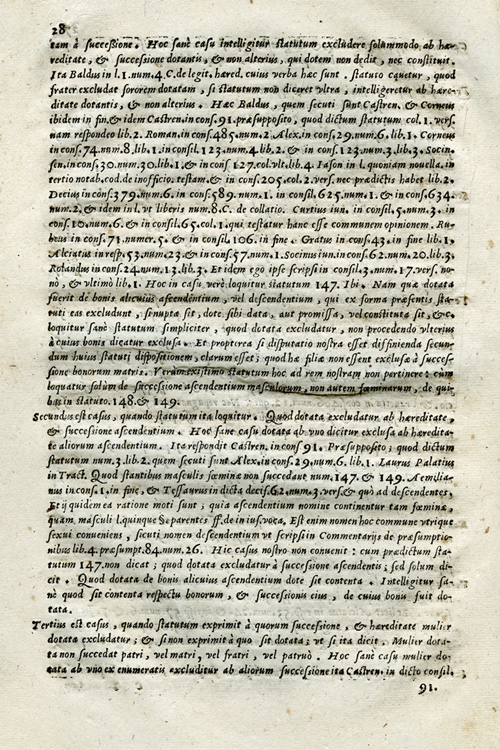 28
tam à successione. Hoc sanè casu intelligitur statutum excludere solummodo ab hæ-
reditate, & successione dotantis, & non alterius, qui dotem non dedit, nec constituit.
Ita Baldus in l.1.num.4.C.de legit.hæred.cuius verba hæc sunt. statuto cauetur, quod
frater excludat sororem dotatam, si statutum non diceret vltra, intelligeretur ab hære-
ditate dotantis, & non alterius. Hæc Baldus, quem secuti sunt Castren. & Corneus
ibidem in fin.& idem Castren.in cons.91.præsupposito, quod dictum statutum col.1.vers.
nam respondeo lib.2. Roman.in cons.485.num.2. Alex.in cons.29.num.6.lib.1. Corneus
in cons.74.num.8.lib.1.in consil.123.num.4.lib.2.& in cons.123.num.3.lib.3. Socin.
sen.in cons.30.num.30.lib.1.& in cons 127.col.vlt.lib.4. Iason in l.quoniam nouella.in
tertio notab.cod.de inofficio.testam.& in cons.205.col.2.vers.nec prædictis habet lib.2.
Decius in cons.379.num.6. in cons.589.num.1. in consil.625.num.1. & in cons.634.
num.2. & idem in l.vt liberis num.8.C. de collatio. Curtius iun. in consil.5.num.3. in
cons.10.num.6.& in consil.65.col.1.qui testatur hanc esse communem opinionem. Ru-
beus in cons.71.numer.5. & in consil.106. in fine. Gratus in cons.43.in fine lib.1.
Alciatus in resp.53.num.23.& in cons.57.num.1.Socinus iun.in cons.62.num.20.lib.3.
Rolandus in cons.24.num.13.lib.3. Et idem ego ipse scripsi in consil.3.num.17.vers.no-
nò, & vltimò lib.1. Hoc in casu verè loquitur statutum 147. Ibi. Nam quæ dotata
fuerit de bonis alicuius ascendentium, vel descendentium, qui ex forma præsentis sta-
tuti eas excludunt, si nupta sit, dote sibi data, aut promissa, vel constituta sit, &c.
loquitur sanè statutum simpliciter, quod dotata excludatur, non procedendo vlterius
à cuius bonis dicatur exclusa. Et propterea si disputatio nostra esset diffinienda secun-
dum huius statuti dispositionem, clarum esset; quod hæ filiæ non essent exclusæ à succes-
sione bonorum matris. Verum existimo statutum hoc ad rem nostram non pertinere: cum
loquatur solùm de successione ascendentium masculorum, non autem fæminarum, de qui-
bus in statuto.148.& 149.
Secundus est casus, quando statutum ita loquitur. Quod dotata excludatur ab hæreditate,
& successione ascendentium. Hoc sane casu dotata ab vno dicitur exclusa ab hæredita-
te aliorum ascendentium. Ita respondit Castren.in cons 91. Præsupposito; quod dictum
statutum num.3.lib.2.quem secuti sunt Alex.in cons.29.num.6.lib.1. Laurus Palatius
in Tract. Quod stantibus masculis fœminæ non succedant num.147.& 149. Aemilia-
nus in cons.1.in fine, & Tessaurus in dicta decis.62.num.3.vers.& quò ad descendentes.
Et ij quidem ea ratione moti sunt; quia ascendentium nomine continentur tam fæminæ,
quam masculi l.quinque §.parentes ff.de in ius.voca. Est enim nomen hoc commune vtrique
sexui conueniens, sicuti nomen descendentium vt scripsi in Commentarijs de præsumptio-
nibus lib.4.præsumpt.84.num.26. Hic casus nostro non conuenit: cum prædictum sta-
tutum 147.non dicat; quod dotata excludatur à successione ascendentis; sed solum di-
cit. Quod dotata de bonis alicuius ascendentium dote sit contenta. Intelligitur sa-
nè quod sit contenta respectu bonorum, & successionis eius, de cuius bonis fuit do-
tata.
Tertius est casus, quando statutum exprimit à quorum successione, & hæreditate mulier
dotata excludatur; & si non exprimit à quo sit dotata; vt si ita dicit. Mulier dota-
ta non succedat patri, vel matri, vel fratri, vel patruo. Hoc sanè casu mulier do-
tata ab vno ex enumeratis excluditur ab aliorum successione ita Castren. in dicto consil.
91.